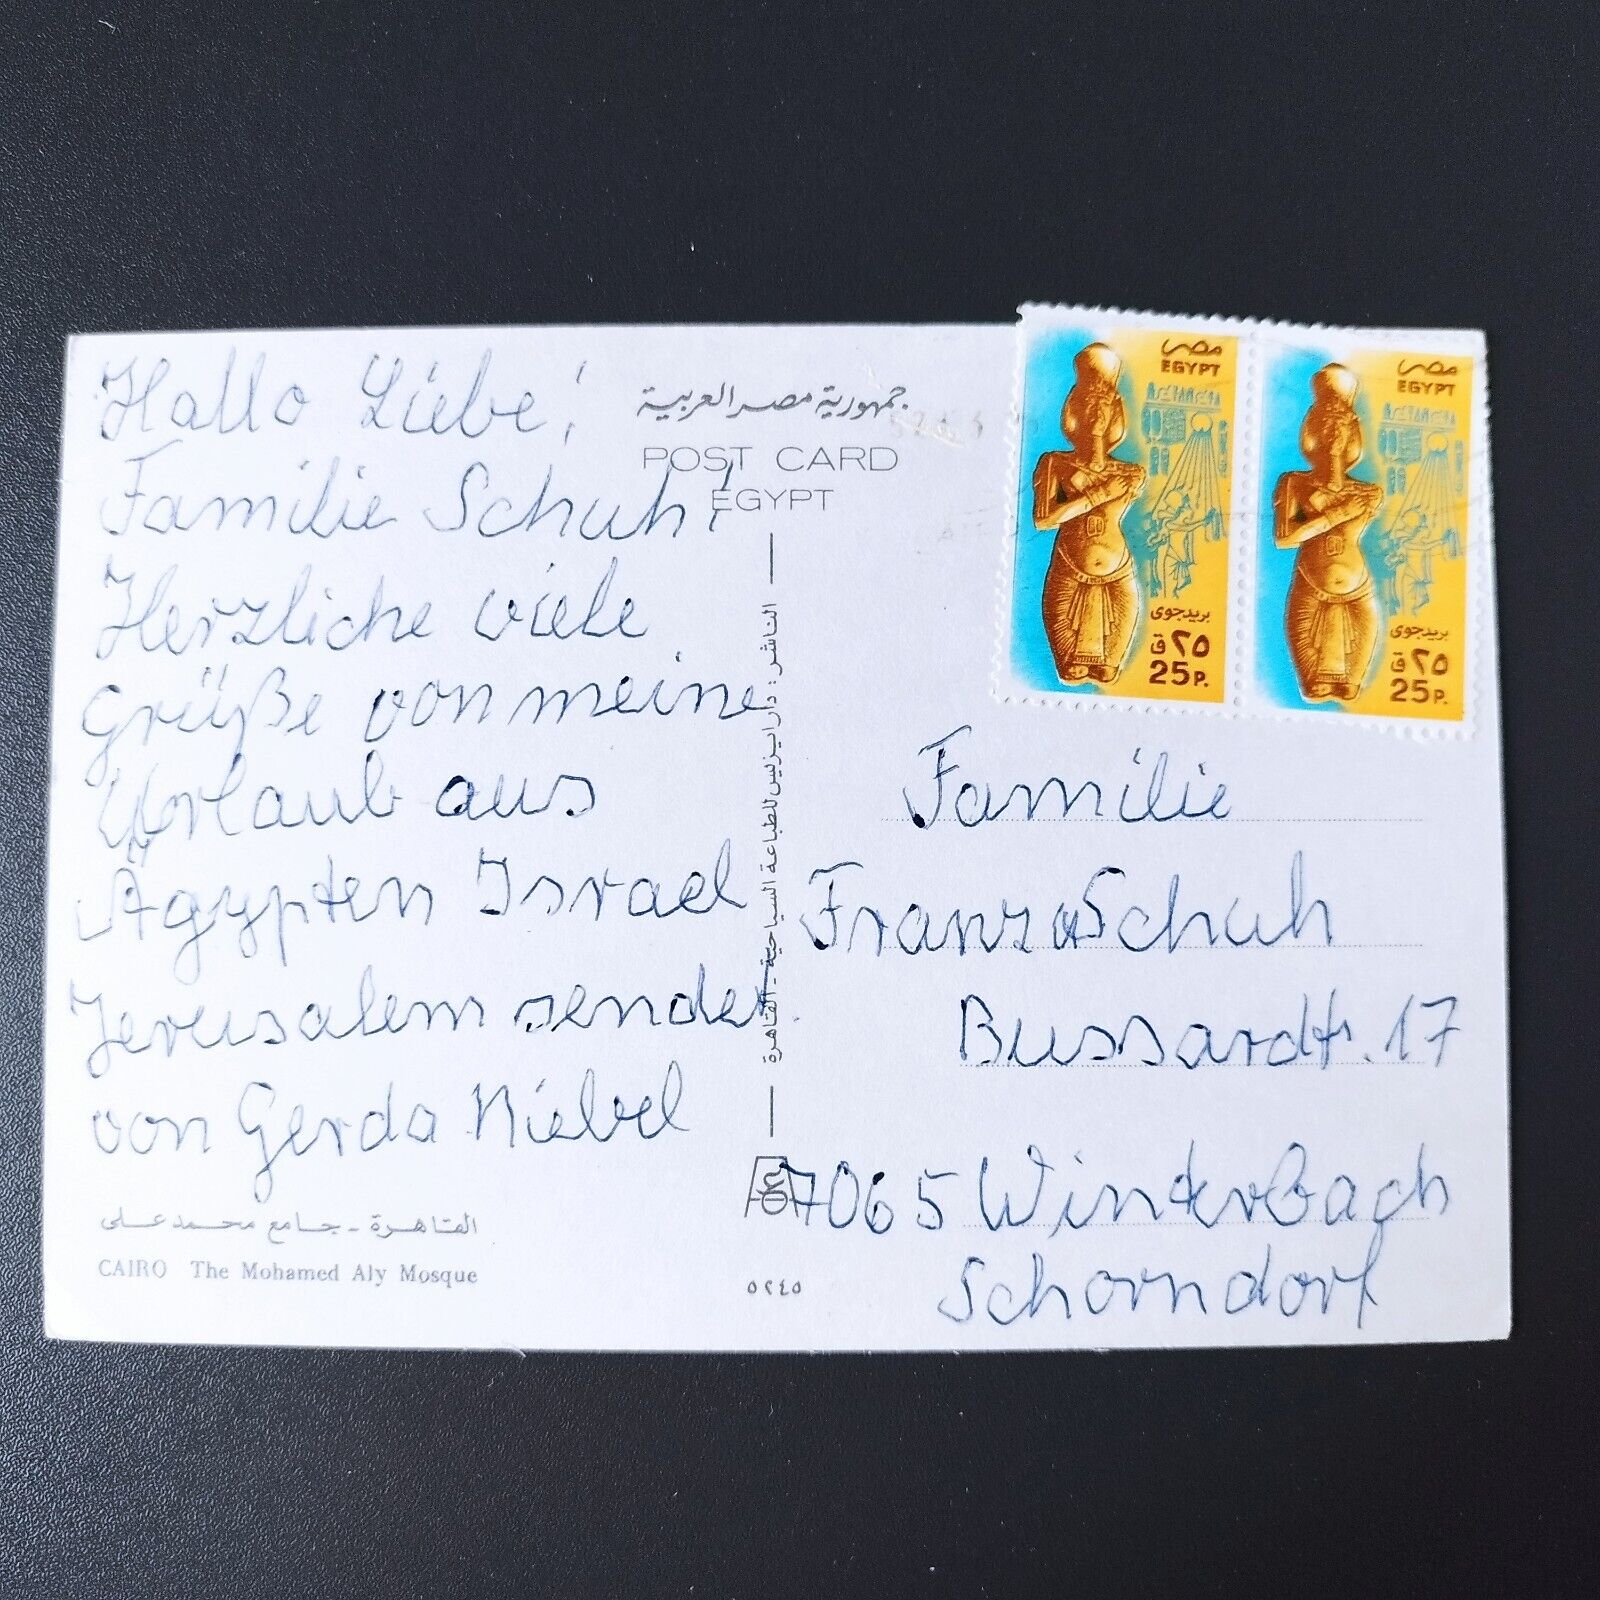 Hallo Liebe!
Familie Schuh!
Herzliche viele
Grüße von meine
Urlaub aus
Ägypten Israel
Jerusalem sendet
von Gerda Niebel
القاهرة - جامع محمد على
CAIRO The Mohamed Aly Mosque
جمهورية مصر العربية
POST CARD
EGYPT
الناشر : دار ايزيس للطباعة السياحية - القاهرة
٥٢٤٥
مصر
EGYPT
بريد جوى
٢٥ ق
25 P.
مصر
EGYPT
بريد جوى
٢٥ ق
25 P.
Familie
Franz Schuh
Bussardtr. 17
7065 Winterbach
Schorndorf